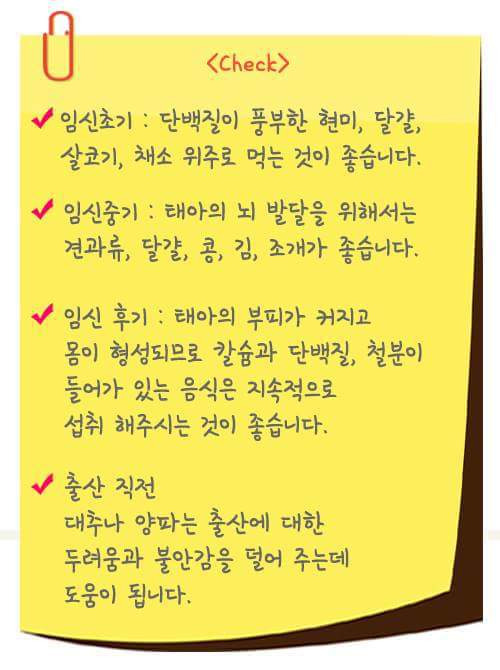 <Check>
임신초기 : 단백질이 풍부한 현미, 달걀,
살코기, 채소 위주로 먹는 것이 좋습니다.
임신중기 : 태아의 뇌 발달을 위해서는
견과류, 달걀, 콩, 김, 조개가 좋습니다.
임신 후기 : 태아의 부피가 커지고
몸이 형성되므로 칼슘과 단백질, 철분이
들어가 있는 음식은 지속적으로
섭취 해주시는 것이 좋습니다.
출산 직전
대추나 양파는 출산에 대한
두려움과 불안감을 덜어 주는데
도움이 됩니다.